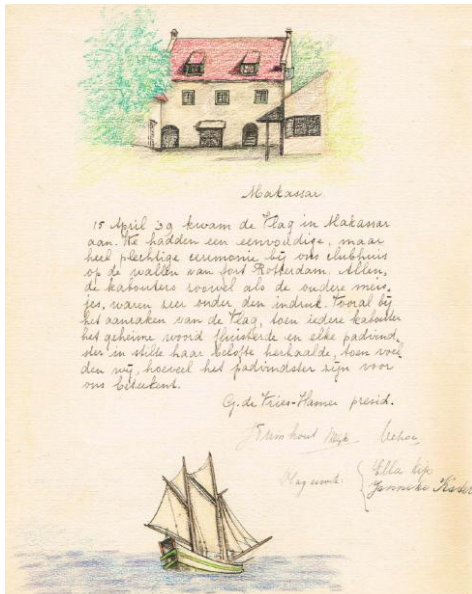 Makassar.
15 April '39 kwam de Vlag in Makassar
aan. We hadden een eenvoudige, maar
heel plechtige ceremonie bij ons clubhuis
op de wallen van fort Rotterdam. Allen,
de kabouters zoowel als de oudere meis,
jes, waren zeer onder den indruk. Vooral bij
het aanraken van de Vlag, toen iedere kabouter
het geheime woord fluisterde en elke padvind,
ster in stilte haar belofte herhaalde, toen voel
den wij, hoeveel het padvindster zijn voor
ons beteekent.
G. de Vries-Hamer presid.
Vlag escorte:
Ella
Janneke